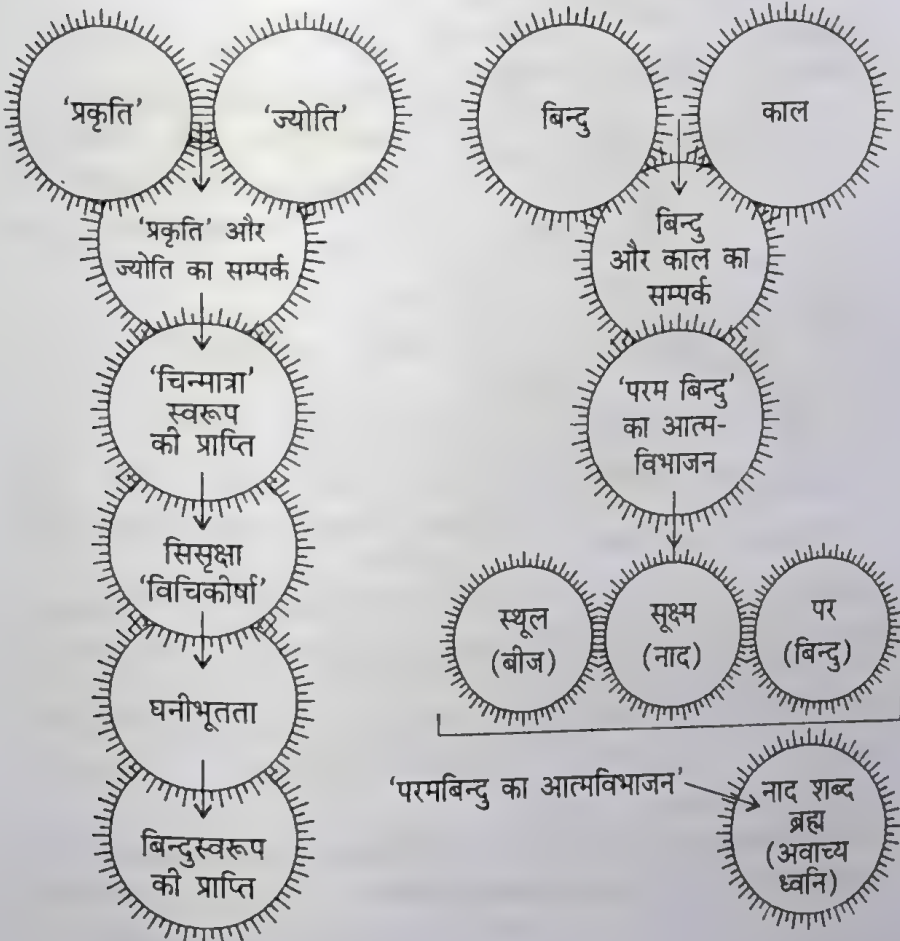 'प्रकृति'
'ज्योति'
'प्रकृति' और
ज्योति का सम्पर्क
'चिन्मात्रा'
स्वरूप
की प्राप्ति
सिसृक्षा
'विचिकीर्षा'
घनीभूतता
बिन्दुस्वरूप
की प्राप्ति
बिन्दु
काल
बिन्दु
और काल का
सम्पर्क
'परम बिन्दु'
का आत्म-
विभाजन
स्थूल
(बीज)
सूक्ष्म
(नाद)
पर
(बिन्दु)
'परमबिन्दु का आत्मविभाजन'
नाद शब्द
ब्रह्म
(अवाच्य
ध्वनि)